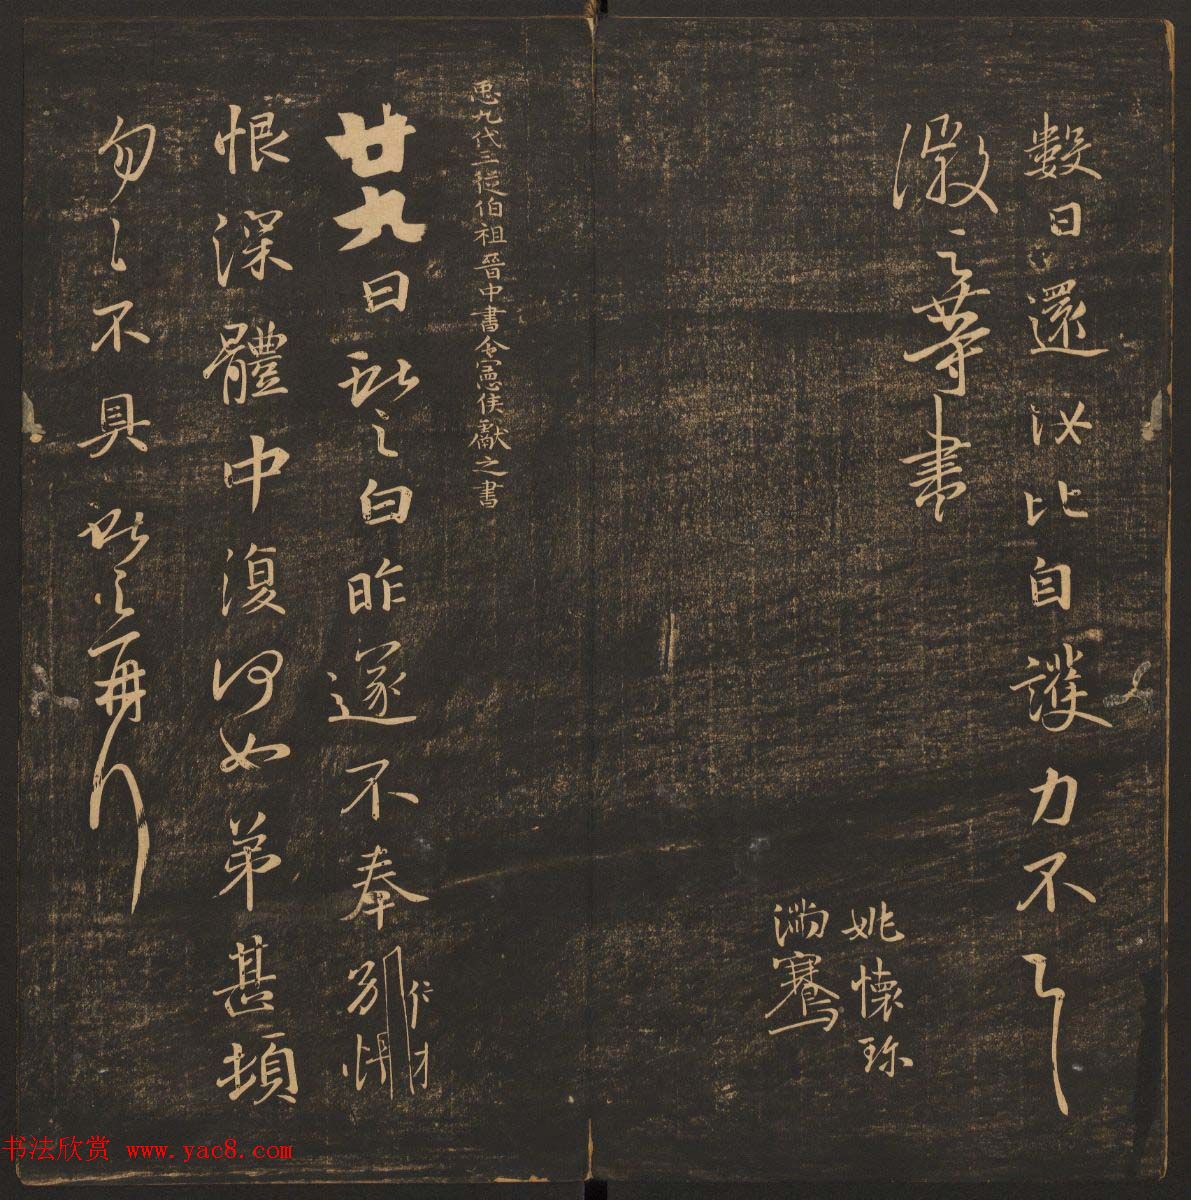 數日還汝比自護力不一一
徽之等書
姚懷珍
滿騫
𢘑九代三從伯祖晉中書令憲侯獻之書
廿九日獻之白昨遂不奉別悵
恨深體中復何如弟甚頓
勿勿不具獻之再拜
书法欣赏 www.yac8.com